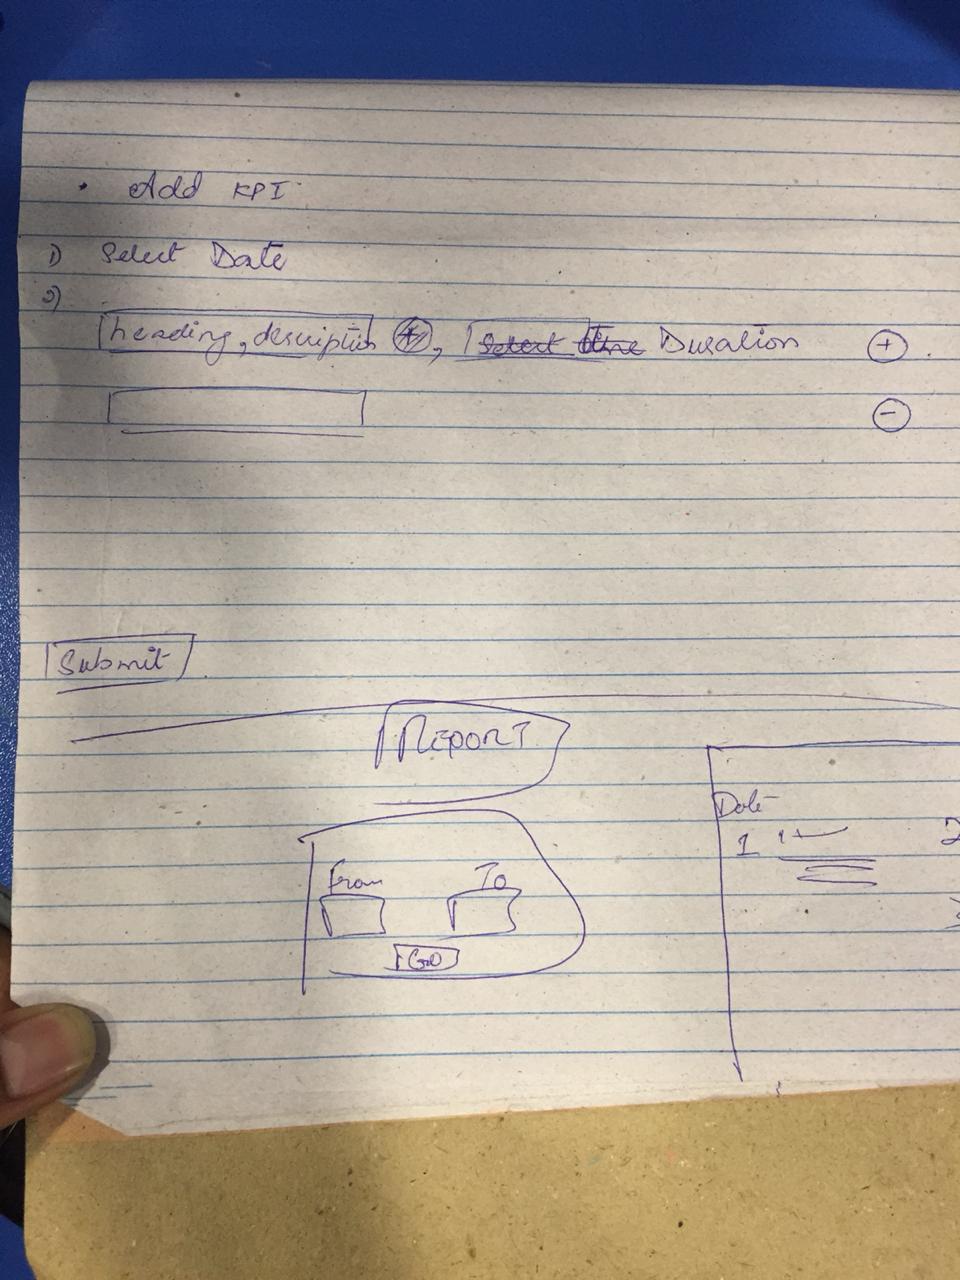 • Add KPI
1) Select Date
2)
heading, description +, Select time Duration +
-
Submit
REPORT
Date
1
2
From To
GO